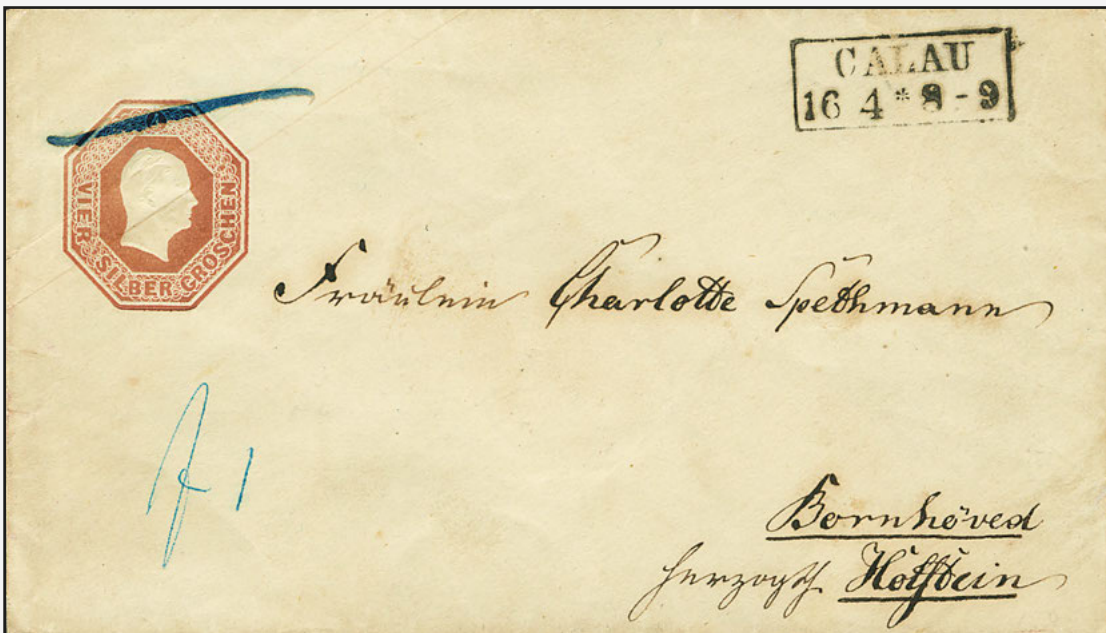 CALAU
16 4 * 8 - 9
4
VIER SILBER GROSCHEN
Fräulein Charlotte Spethmann
f 1
Bornhöved
herzogth. Holstein